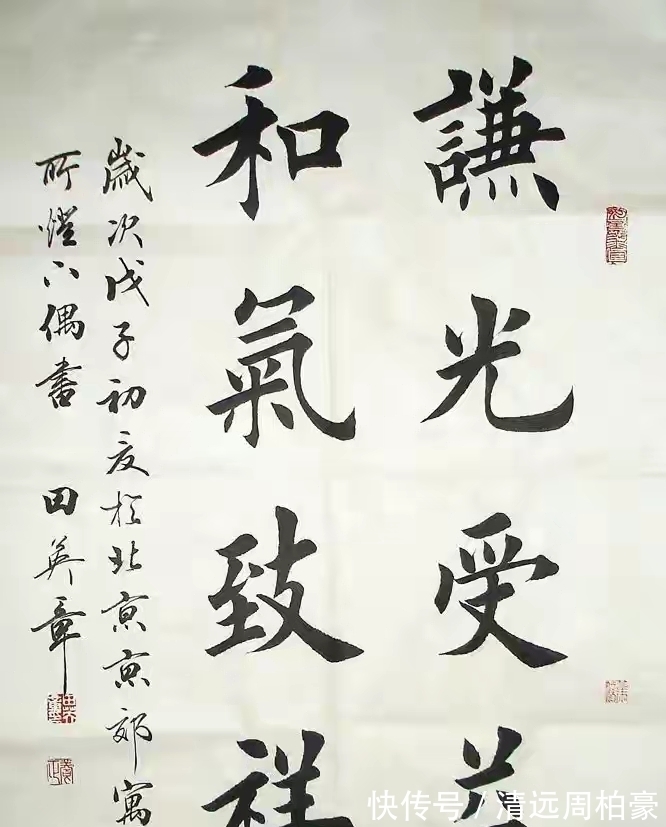 謙光受益
和氣致祥
歲次戊子初夏於北京京郊寓
所燈下偶書 田英章
快传号/清远周柏豪